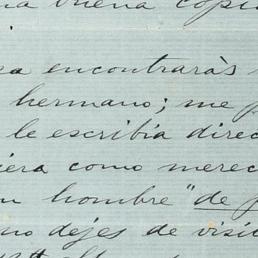 na buena copi
sa encontraràs
hermano; me p
le escribia direc
iera como merec
un hombre "de p
no dejes de visi